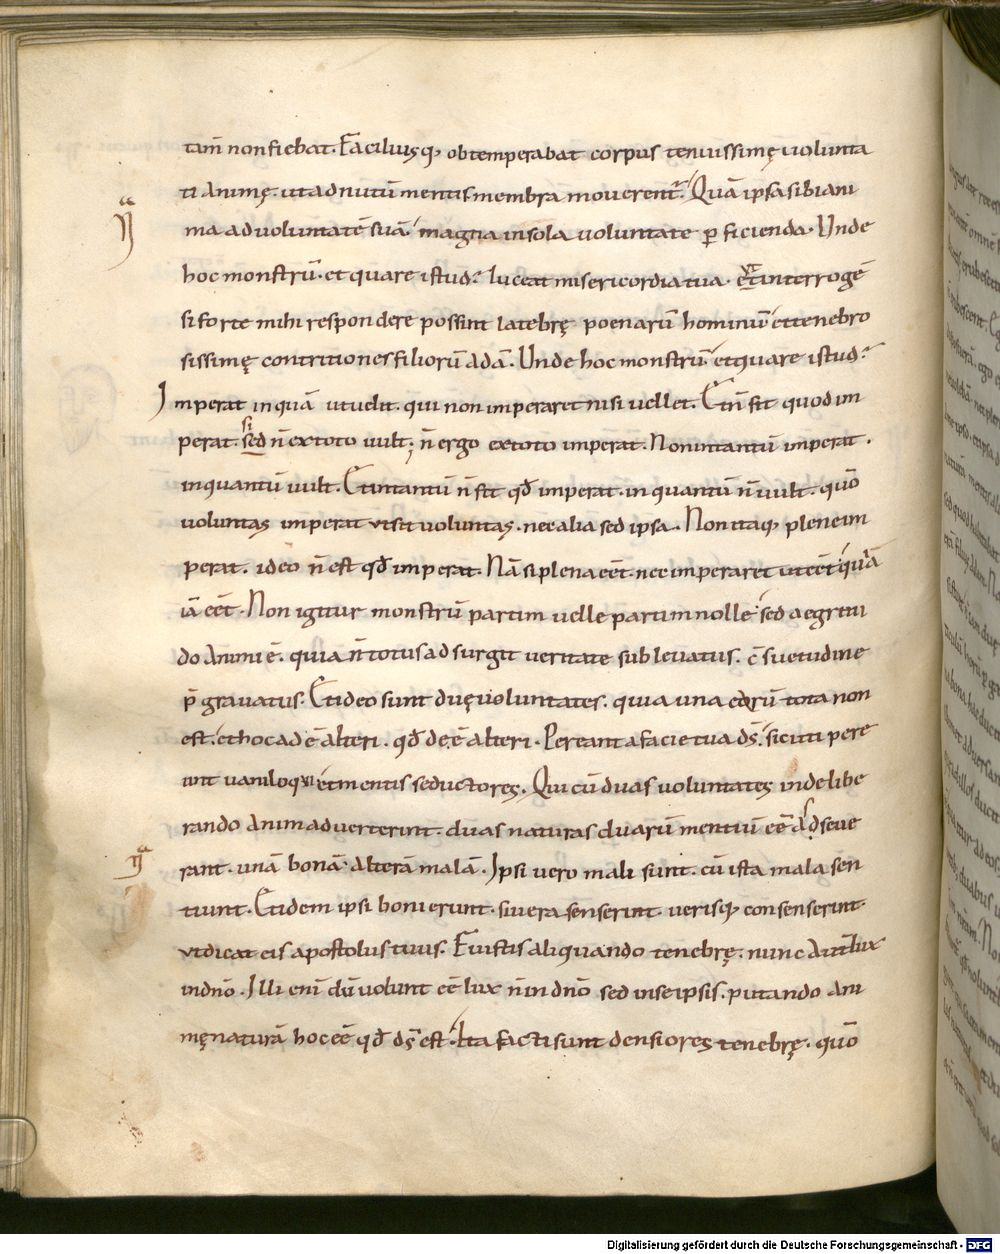 tam̄ non fiebat. Faciliusq; obtemperabat corpus tenuissimę volunta
ti animę. ut ad nutū mentis membra moverent᷑. Quā ipsa sibi ani
ma ad voluntatē suā magna in sola voluntate ꝑficienda. Unde
hoc monstrū. et quare istud? luceat misericordia tua. et interrogē
si forte mihi respondere possint latebrę poenarū hominū et tenebro
sissimę contritiones filiorū adā. Unde hoc monstrū. et quare istud?
Imperat inquā ut velit. qui non imperaret nisi vellet. Et n̄ fit quod im
perat. sed n̄ ex toto vult; n̄ ergo ex toto imperat. Non intantū imperat.
inquantū vult. Et intantū n̄ fit qđ imperat. inquantū n̄ vult. quō
voluntas imperat ut sit voluntas. nec alia sed ipsa. Non itaq; plene im
perat. ideo n̄ est qđ imperat. Nā si plena eēt. nec imperaret ut eēt quia
iā eēt. Non igitur monstrū partim velle partim nolle. sed aegritu
do animi ē. quia n̄ totus adsurgit veritate sublevatus. c̄suetudine
p̄gravatus. Et ideo sunt duę voluntates. quia una eorū tota non
est. et hoc adē alteri. qđ deē alteri. Pereant a facie tua dś. sicuti pere
unt vaniloqui et mentis seductores. Qui cū duas voluntates in delibe
rando animadverterint. duas naturas duarū mentiū eē adseve
rant. unā bonā alterā malā. Ipsi vero mali sunt. cū ista mala sen
tiunt. Et idem ipsi boni erunt. si vera senserint verisq; consenserint.
ut dicat eis apostolus tuus. Fuistis aliquando tenebrę. nunc autē lux
in dn̄o. Illi enī dū volunt eē lux n̄ in dn̄o sed in seipsis. putando ani
mę naturā hoc eē qđ dś est. Ita facti sunt densiores tenebrę. quō
Digitalisierung gefördert durch die Deutsche Forschungsgemeinschaft - DFG